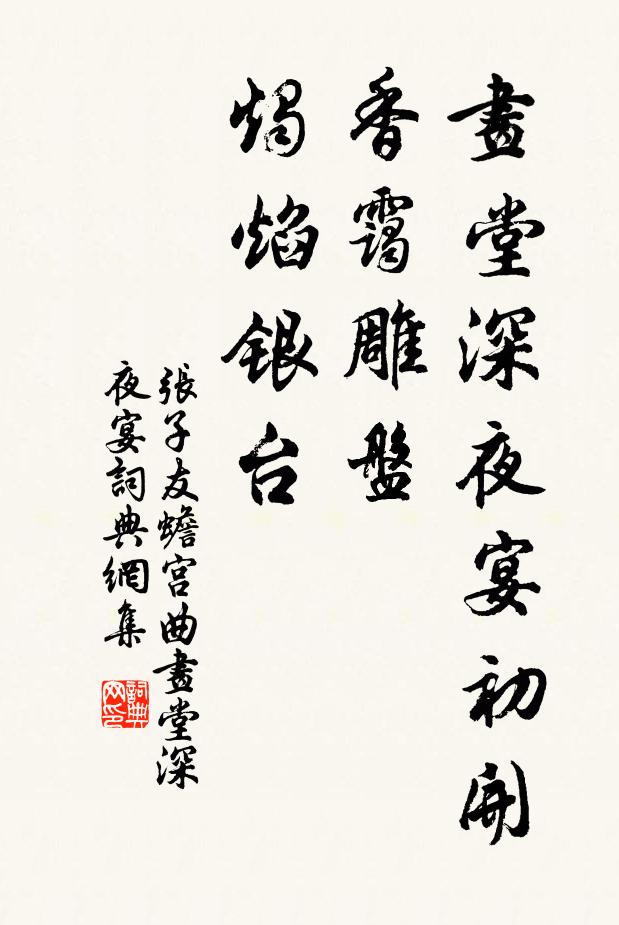 畫堂深夜宴初開
香靄雕盤
燭焰銀台
張子友蟾宮曲畫堂深
夜宴詞典網集
詞典
网印